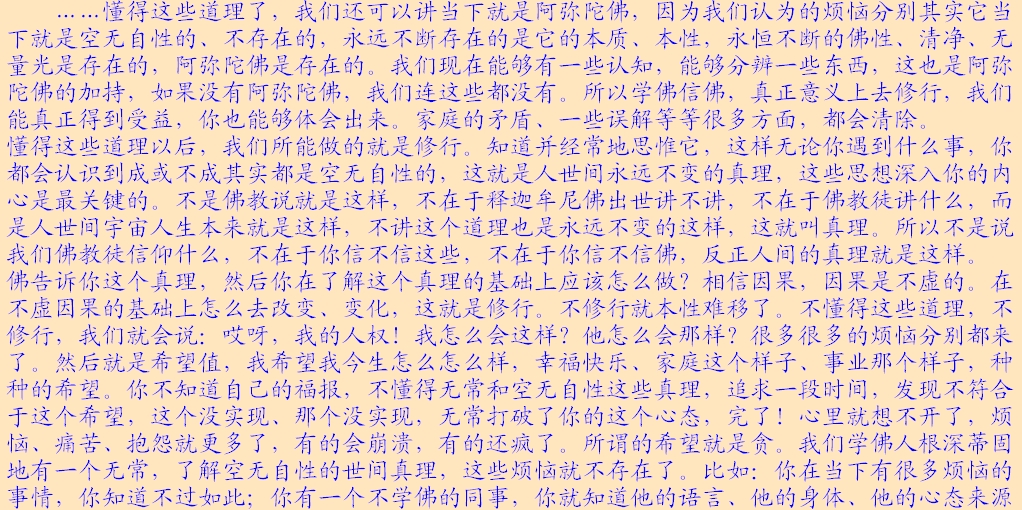 ……懂得这些道理了，我们还可以讲当下就是阿弥陀佛，因为我们认为的烦恼分别其实它当
下就是空无自性的、不存在的，永远不断存在的是它的本质、本性，永恒不断的佛性、清净、无
量光是存在的，阿弥陀佛是存在的。我们现在能够有一些认知，能够分辨一些东西，这也是阿弥
陀佛的加持，如果没有阿弥陀佛，我们连这些都没有。所以学佛信佛，真正意义上去修行，我们
能真正得到受益，你也能够体会出来。家庭的矛盾、一些误解等等很多方面，都会清除。
懂得这些道理以后，我们所能做的就是修行。知道并经常地思惟它，这样无论你遇到什么事，你
都会认识到成或不成其实都是空无自性的，这就是人世间永远不变的真理，这些思想深入你的内
心是最关键的。不是佛教说就是这样，不在于释迦牟尼佛出世讲不讲，不在于佛教徒讲什么，而
是人世间宇宙人生本来就是这样，不讲这个道理也是永远不变的这样，这就叫真理。所以不是说
我们佛教徒信仰什么，不在于你信不信这些，不在于你信不信佛，反正人间的真理就是这样。
佛告诉你这个真理，然后你在了解这个真理的基础上应该怎么做？相信因果，因果是不虚的。在
不虚因果的基础上怎么去改变、变化，这就是修行。不修行就本性难移了。不懂得这些道理，不
修行，我们就会说：哎呀，我的人权！我怎么会这样？他怎么会那样？很多很多的烦恼分别都来
了。然后就是希望值，我希望我今生怎么怎么样，幸福快乐、家庭这个样子、事业那个样子，种
种的希望。你不知道自己的福报，不懂得无常和空无自性这些真理，追求一段时间，发现不符合
于这个希望，这个没实现、那个没实现，无常打破了你的这个心态，完了！心里就想不开了，烦
恼、痛苦、抱怨就更多了，有的会崩溃，有的还疯了。所谓的希望就是贪。我们学佛人根深蒂固
地有一个无常，了解空无自性的世间真理，这些烦恼就不存在了。比如：你在当下有很多烦恼的
事情，你知道不过如此；你有一个不学佛的同事，你就知道他的语言、他的身体、他的心态来源